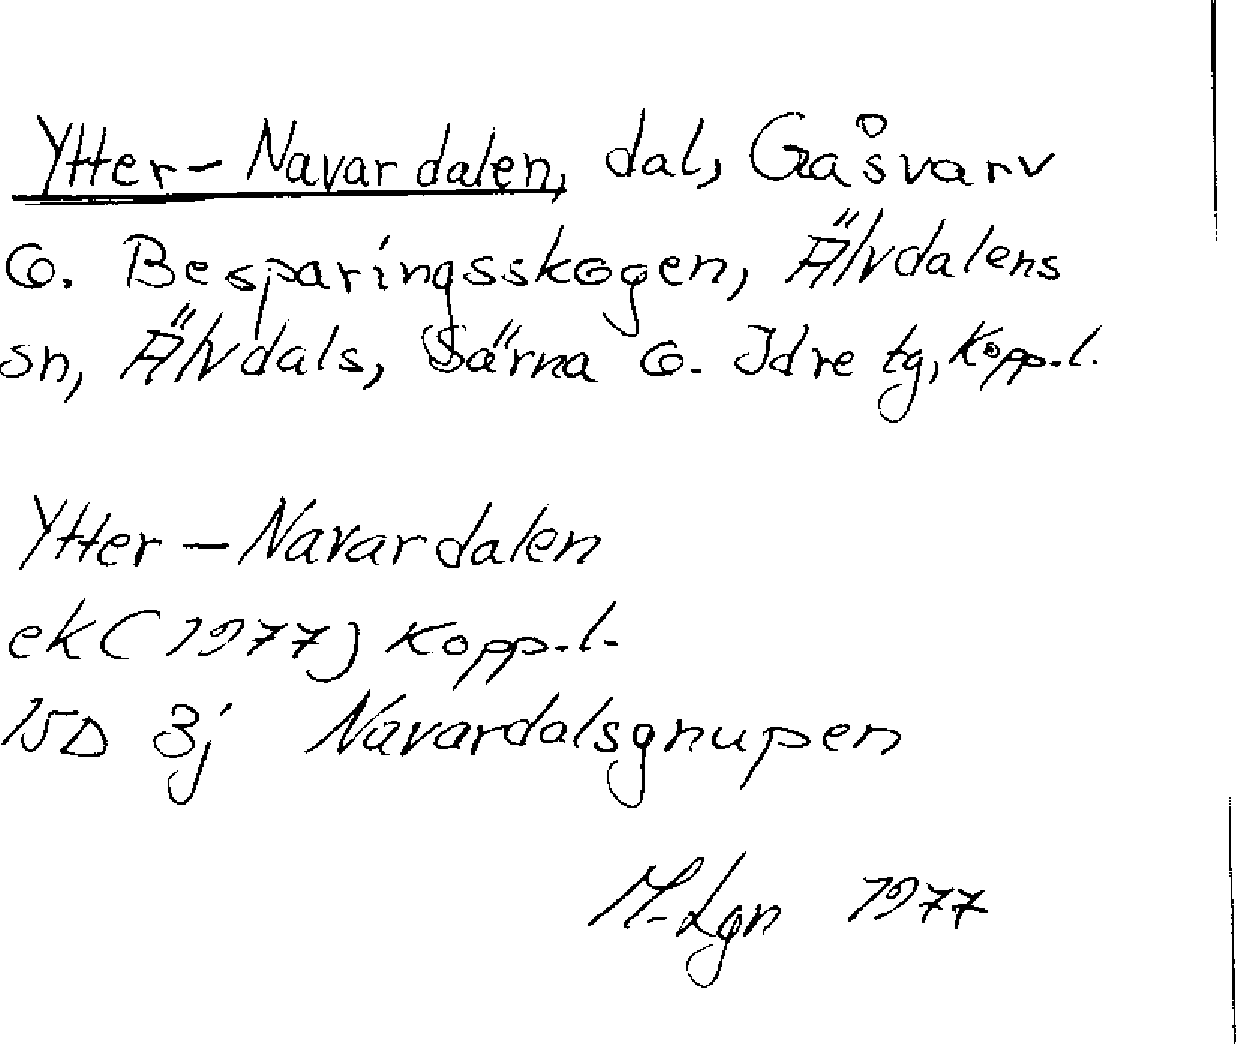 Ytter-Navardalen, dal, Gåsvarv
o. Besparingsskogen, Älvdalens
sn, Älvdals, Särna o. Idre tg, Kopp.l.
Ytter-Navardalen
ek (1977) Kopp.l.
15D 3j Navardalsgnupen
M-Lgn 1977